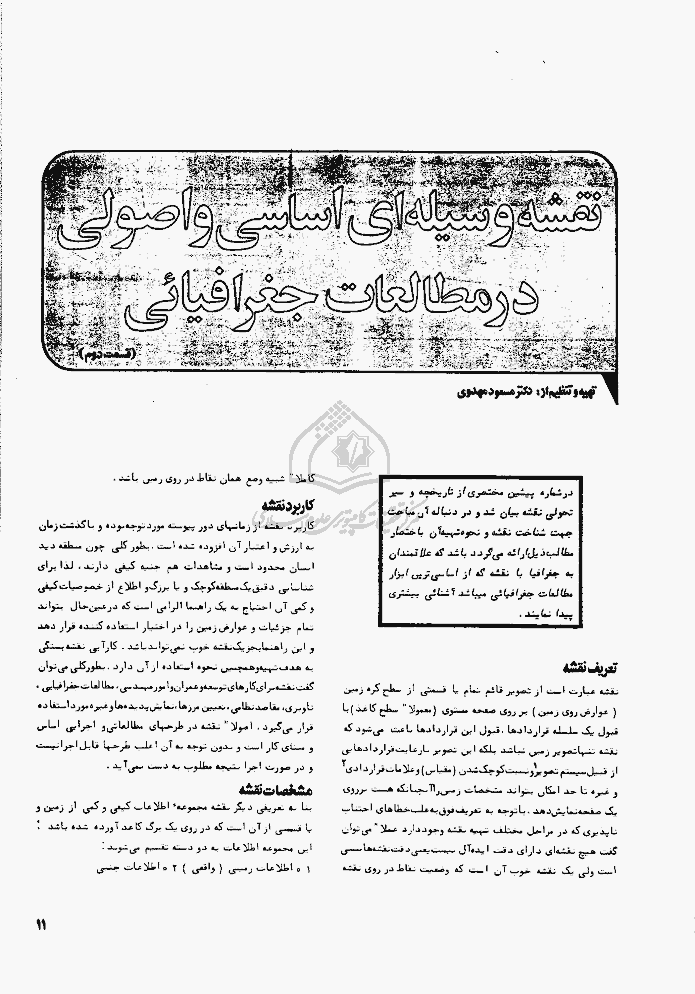 نقشه وسیله‌ای اساسی و اصولی
در مطالعات جغرافیائی
(قسمت دوم)
تهیه و تنظیم از: دکتر مسعود مهدوی
در شماره پیشین مختصری از تاریخچه و سیر
تحولی نقشه بیان شد و در دنباله آن مباحث
جهت شناخت نقشه و نحوه تهیه آن باختصار
مطالب ذیل ارائه می‌گردد باشد که علاقمندان
به جغرافیا با نقشه که از اساسی‌ترین ابزار
مطالعات جغرافیائی میباشد آشنائی بیشتری
پیدا نمایند .
تعریف نقشه
نقشه عبارت است از تصویر قائم تمام یا قسمتی از سطح کره زمین
( عوارض روی زمین ) بر روی صفحه مستوی (معمولا" سطح کاغذ) با
قبول یک سلسله قراردادها ، قبول این قراردادها باعث می‌شود که
نقشه تنها تصویر زمین نباشد بلکه این تصویر با رعایت قراردادهایی
از قبیل سیستم تصویر و نسبت کوچک شدن (مقیاس) و علامات قراردادی۲
و غیره تا حد امکان بتواند مشخصات زمین را آنچنانکه هست بر روی
یک صفحه نمایش دهد . با توجه به تعریف فوق به علت خطاهای اجتناب
ناپذیری که در مراحل مختلف تهیه نقشه وجود دارد عملا" می‌توان
گفت هیچ نقشه‌ای دارای دقت ایده‌آل نیست یعنی دقت نقشه‌ها نسبی
است ولی یک نقشه خوب آن است که وضعیت نقاط در روی نقشه
کاملا" شبیه وضع همان نقاط در روی زمین باشد .
کاربرد نقشه
کاربرد نقشه از زمانهای دور پیوسته مورد توجه بوده و با گذشت زمان
به ارزش و اعتبار آن افزوده شده است . بطور کلی چون منطقه دید
انسان محدود است و مشاهدات هم جنبه کیفی دارند ، لذا برای
شناسایی دقیق یک منطقه کوچک و یا بزرگ و اطلاع از خصوصیات کیفی
و کمی آن احتیاج به یک راهنما الزامی است که در عین حال بتواند
تمام جزئیات و عوارض زمین را در اختیار استفاده کننده قرار دهد
و این راهنما بجز یک نقشه خوب نمی‌تواند باشد . کارآیی نقشه بستگی
به هدف تهیه و همچنین نحوه استفاده از آن دارد . بطور کلی می‌توان
گفت نقشه برای کارهای توسعه و عمران و امور مهندسی ، مطالعات جغرافیایی ،
ناوبری ، مقاصد نظامی ، تعیین مرزها ، نمایش پدیده‌ها و غیره مورد استفاده
قرار می‌گیرد . اصولا" نقشه در طرحهای مطالعاتی و اجرایی اساس
و مبنای کار است و بدون توجه به آن اغلب طرحها قابل اجرا نیست
و در صورت اجرا نتیجه مطلوب به دست نمی‌آید .
مشخصات نقشه
بنا به تعریفی دیگر نقشه مجموعه اطلاعات کیفی و کمی از زمین و
یا قسمتی از آن است که در روی یک برگ کاغذ آورده شده باشد :
این مجموعه اطلاعات به دو دسته تقسیم می‌شوند :
۱ ه اطلاعات زمینی ( واقعی ) ۲ ه اطلاعات جنبی
۱۱